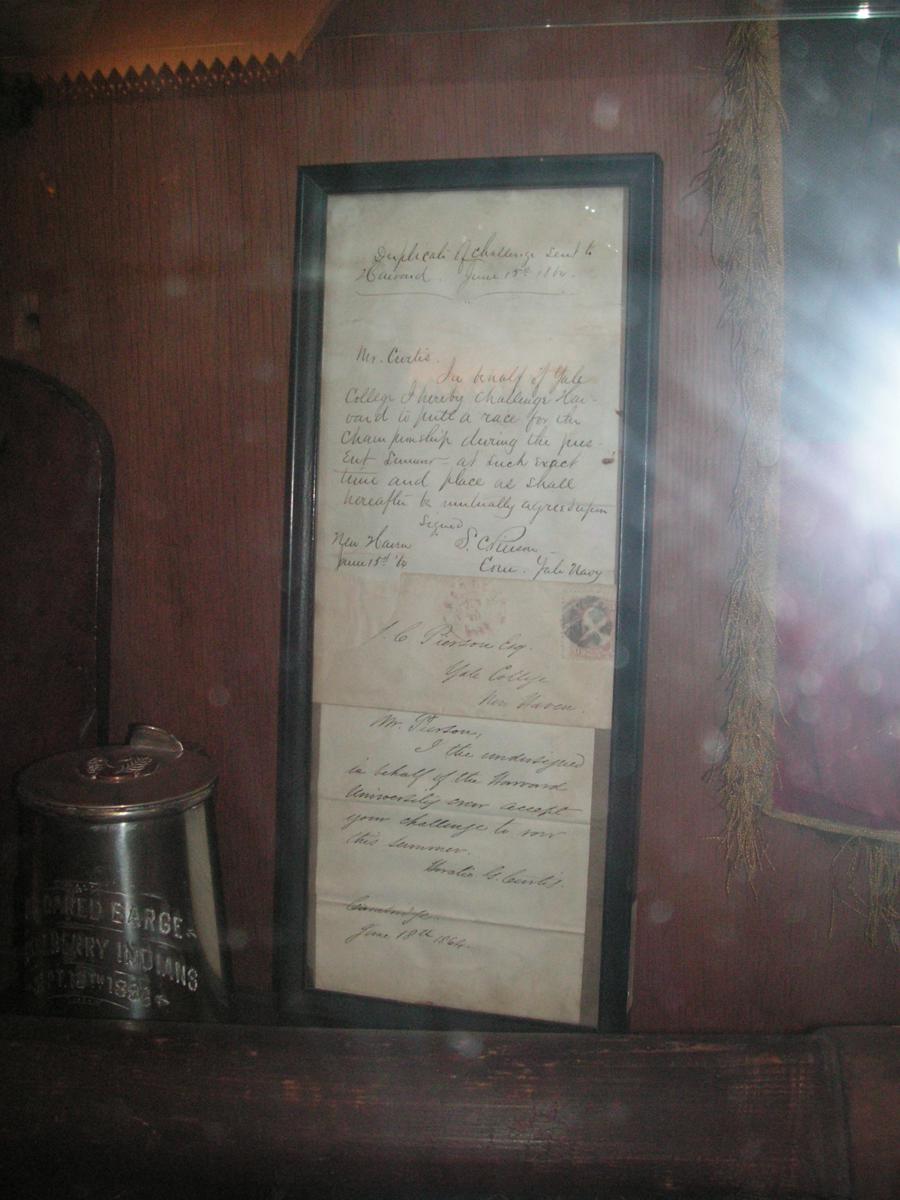 Duplicate of challenge sent to
Harvard. June 15th 1864.
Mr. Curtis.
In behalf of Yale
College I hereby challenge Har-
vard to pull a race for the
Championship during the pres-
ent Summer - at such exact
time and place as shall
hereafter be mutually agreed upon
Signed
New Haven S. C. Pierson
June 15th '64 Com. Yale Navy
S. C. Pierson Esq.
Yale College
New Haven.
Mr. Pierson,
I the undersigned
in behalf of the Harvard
University crew accept
your challenge to row
this summer.
Horatio G. Curtis.
Cambridge.
June 18th 1864.
OARED BARGE
BERRY INDIANS